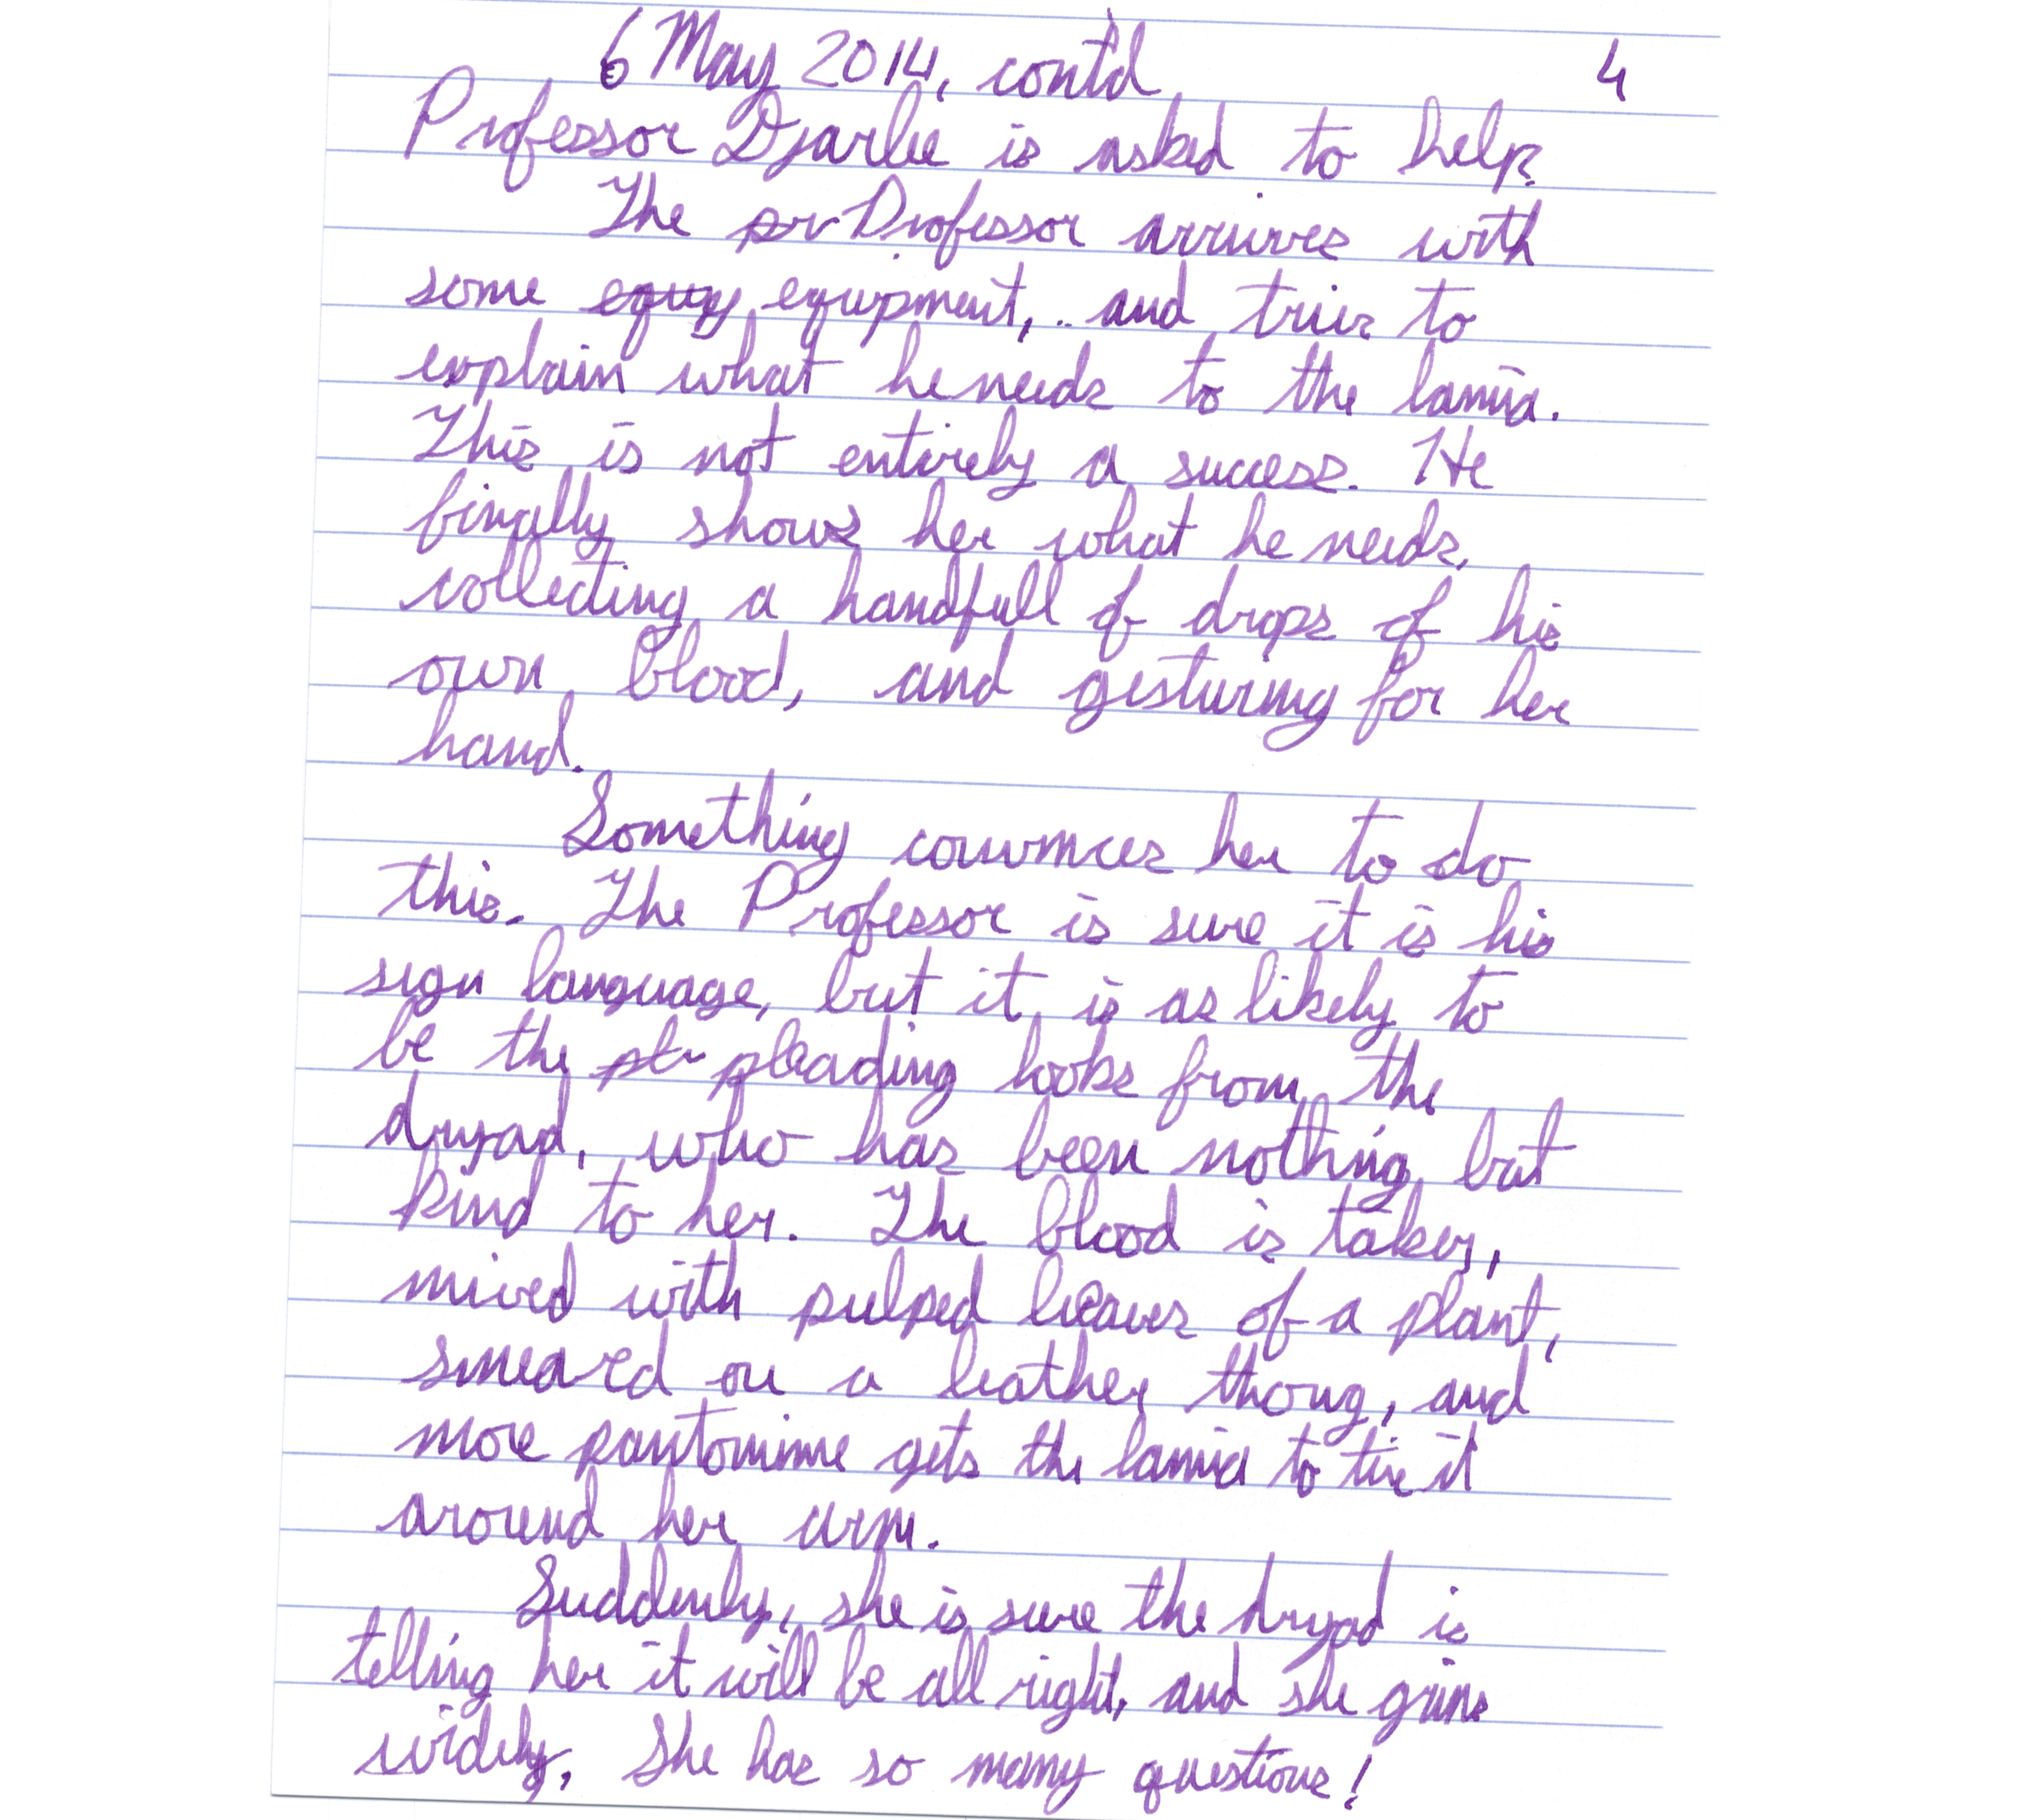 6 May 2014, contd 4
Professor Djarlie is asked to help.
The pr Professor arrives with
some equy equipment, and tries to
explain what he needs to the lamia.
This is not entirely a success. He
finally shows her what he needs,
collecting a handfull of drops of his
own blood, and gesturing for her
hand.
Something convinces her to do
this. The Professor is sure it is his
sign language, but it is as likely to
be the ple pleading looks from the
dryad, who has been nothing but
kind to her. The blood is taken,
mixed with pulped leaves of a plant,
smeared on a leather thong, and
more pantomime gets the lamia to tie it
around her arm.
Suddenly, she is sure the dryad is
telling her it will be all right, and she grins
widely. She has so many questions!